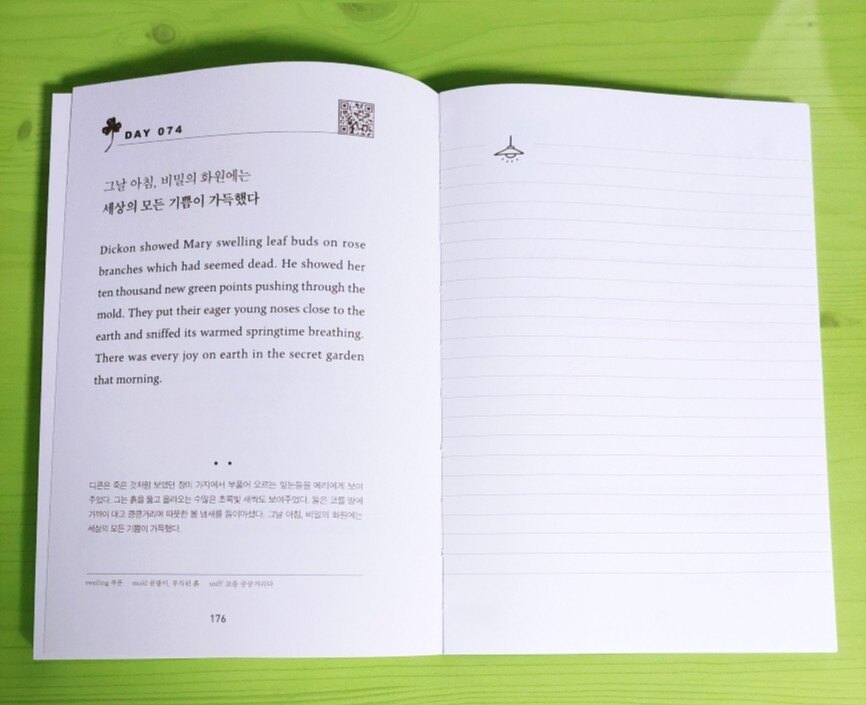 DAY 074
그날 아침, 비밀의 화원에는
세상의 모든 기쁨이 가득했다
Dickon showed Mary swelling leaf buds on rose
branches which had seemed dead. He showed her
ten thousand new green points pushing through the
mold. They put their eager young noses close to the
earth and sniffed its warmed springtime breathing.
There was every joy on earth in the secret garden
that morning.
디콘은 죽은 것처럼 보였던 장미 가지에서 부풀어 오르는 잎눈들을 메리에게 보여
주었다. 그는 흙을 뚫고 올라오는 수많은 초록빛 새싹도 보여주었다. 둘은 코를 땅에
가까이 대고 킁킁거리며 따뜻한 봄 냄새를 들이마셨다. 그날 아침, 비밀의 화원에는
세상의 모든 기쁨이 가득했다.
swelling 부푼 mold 곰팡이, 부식된 흙 sniff 코를 킁킁거리다
176